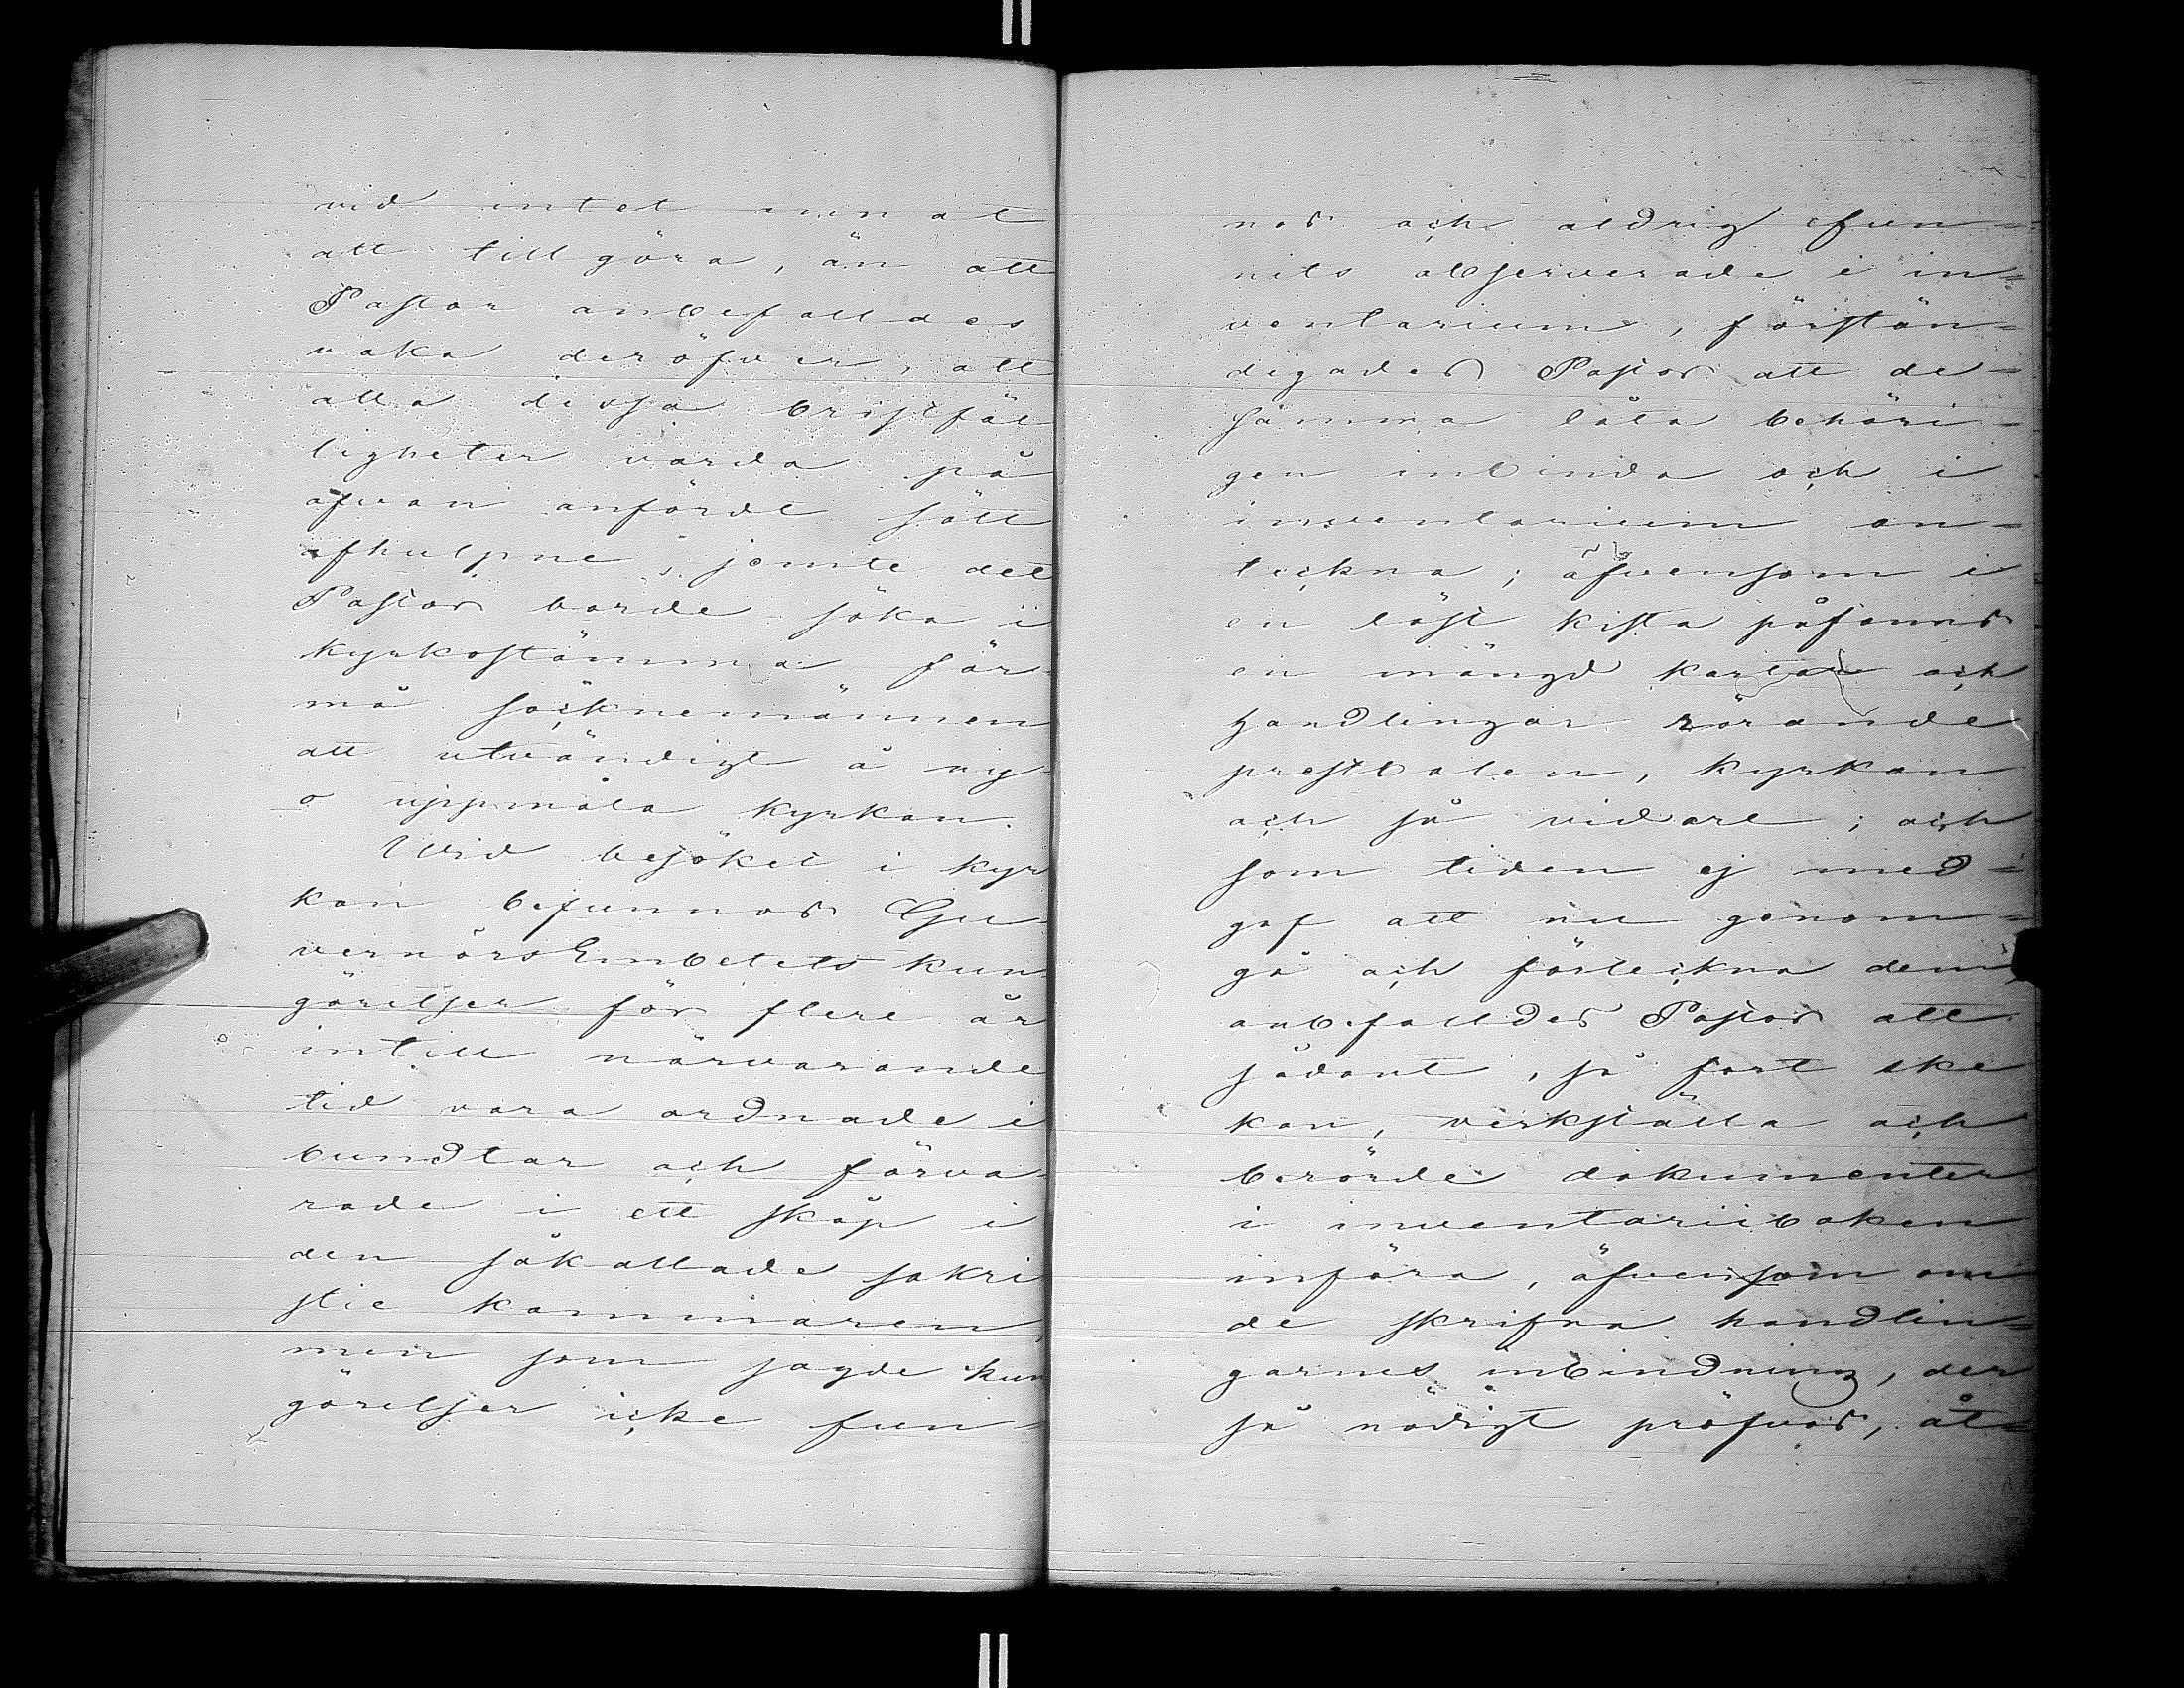 vid intet annat
att tillgöra, än att
Pastor anbefalldes
vaka deröfver, att
alla dessa bristfäl
ligheter varda på
ofvan anfördt sätt
afhulpne, jemte det
Pastor borde söka i
kyrkostämma för-
må socknemännen
att utvändigt å ny-
o uppmåla kyrkan.
Wid besöket i kyr
kan befunnos Gu-
vernörsEmbetets kun
görelser för flere år
intill närvarande
tid vara ordnade i
bundtar och förva-
rade i ett skåp i
den såkallade sakri
stie kammaren,
men som sagde kun
görelser icke fun-
nos och aldrig fun-
nits observerade i in-
ventarium, förstän-
digades Pastor att de-
samma låta behöri-
gen inbinda och i
inventarium an-
teckna; äfvensom i
en låst kista påfanns
en mängd kartor och
handlingar rörande
prestbolen, kyrkan
och så vidare; och
som tiden ej med-
gaf att nu genom-
gå och förteckna dem,
anbefalldes Pastor att
sådant, så fort ske
kan, verkställa och
berörde dokumenter
i inventariiboken
införa, äfvensom om
de skrifna handlin-
garnes inbindning, der
så nödigt pröfvas, åt-